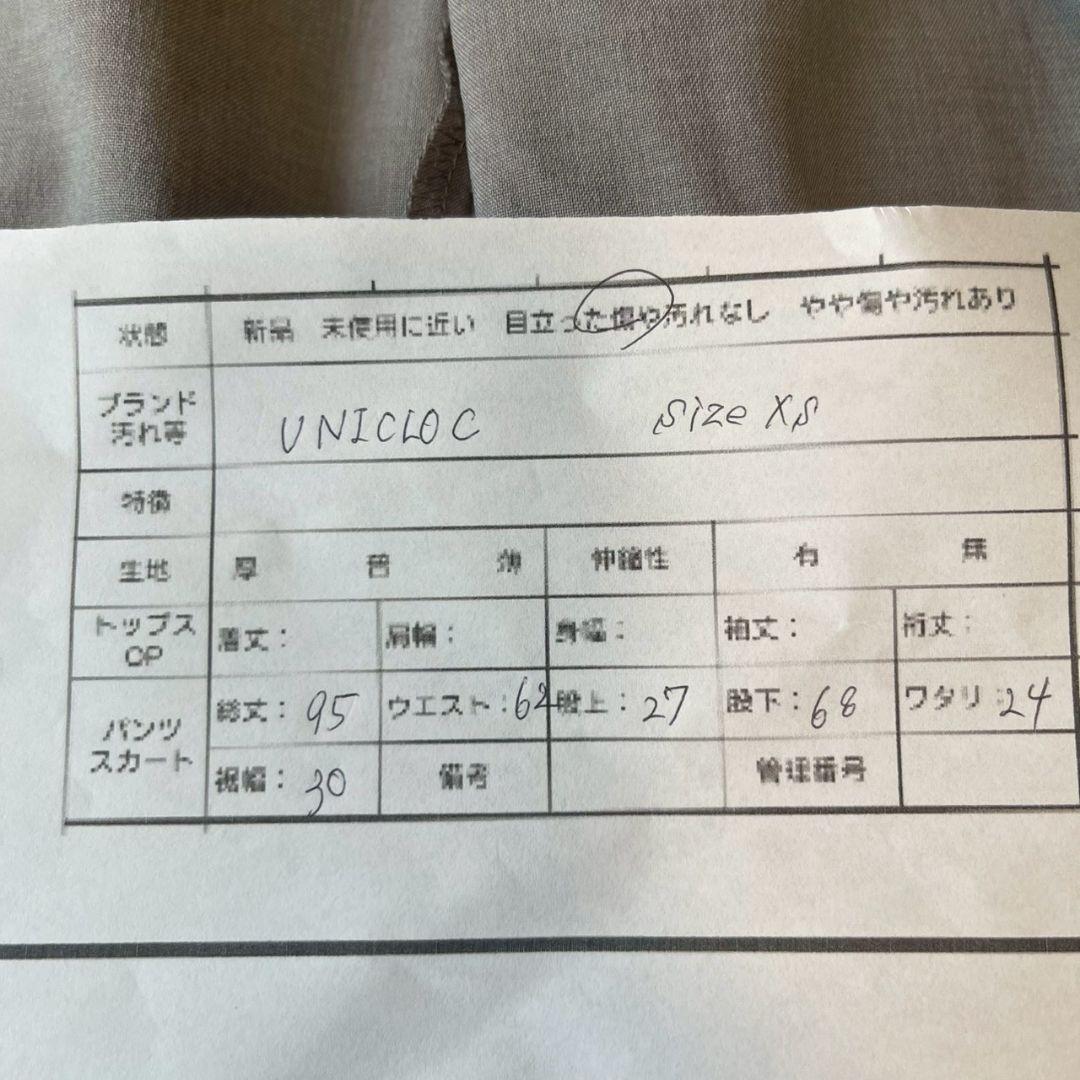 状態 新品 未使用に近い 目立った傷や汚れなし やや傷や汚れあり
ブランド
汚れ等 UNICLOC size XS
特徴
生地 厚 普 薄 伸縮性 有 無
トップス
OP 着丈： 肩幅： 身幅： 袖丈： 裄丈：
パンツ
スカート 総丈：95 ウエスト：62 股上：27 股下：68 ワタリ：24
裾幅：30 備考 管理番号